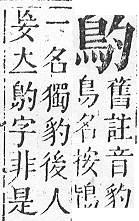 舊註音豹
鳥名按鴇
一名獨豹後人
妄一字非是